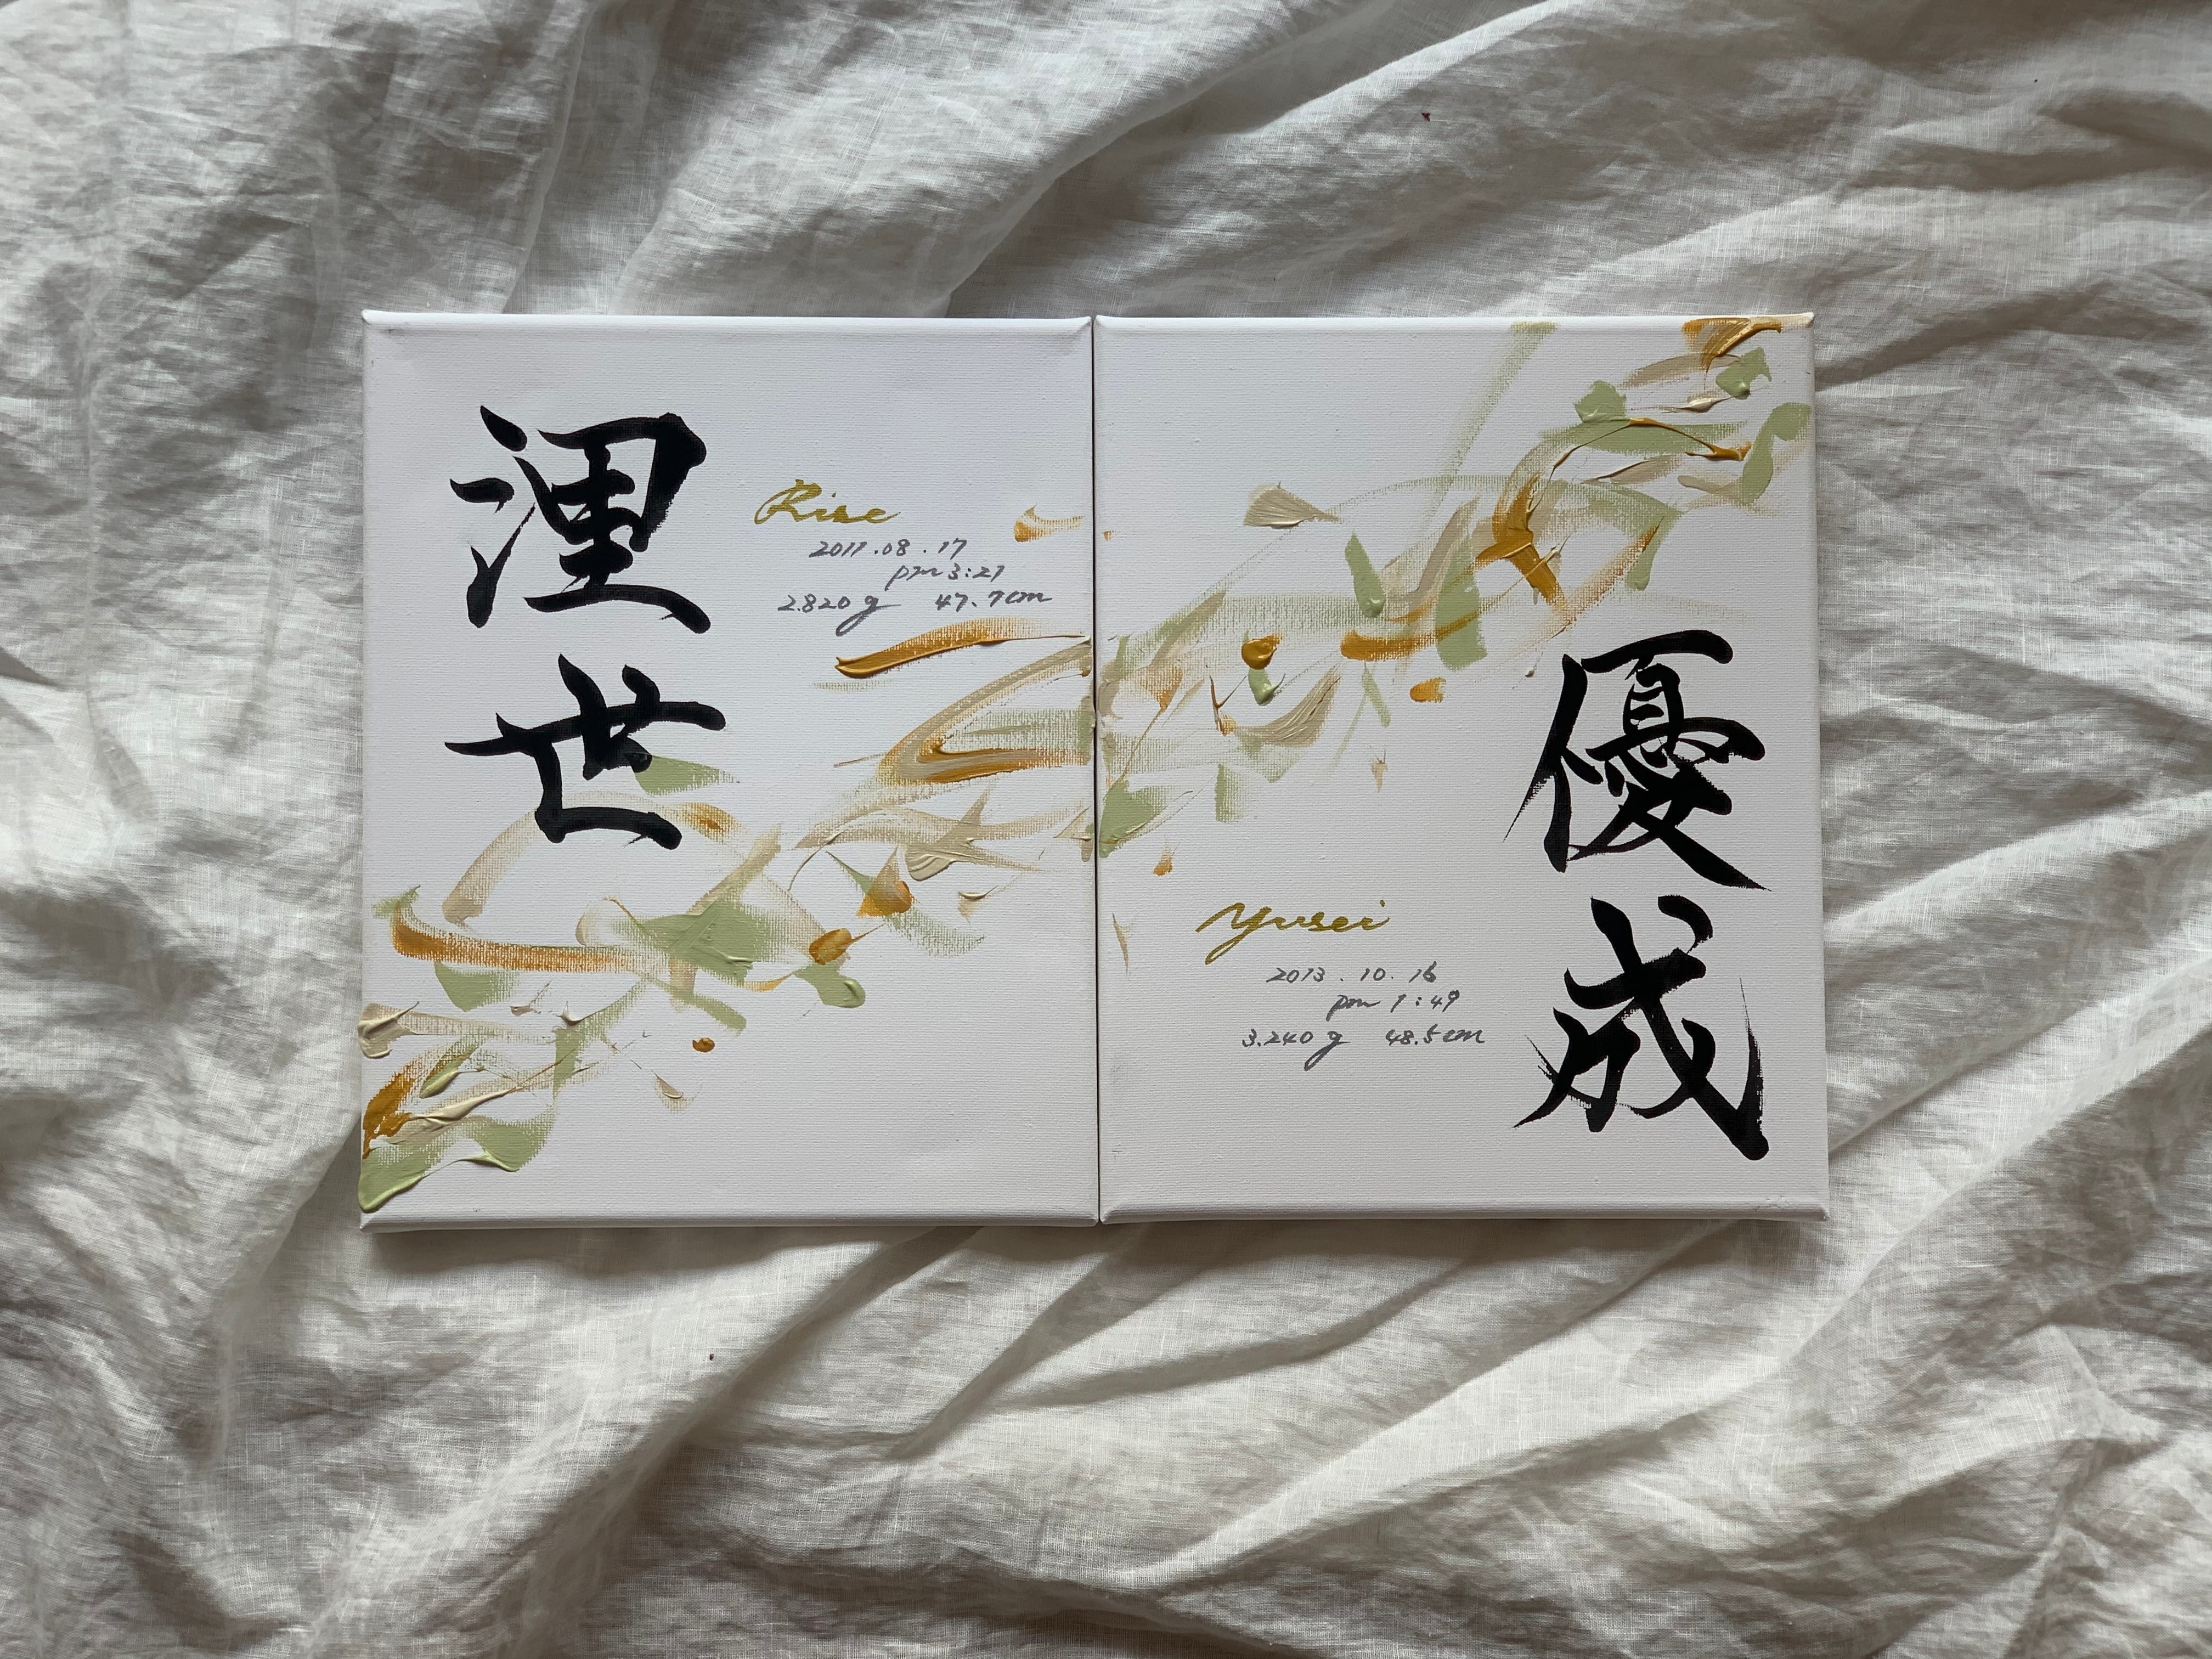 浬世
Rise
2017.08.17
pm 3:27
2.820g 47.7cm
優成
Yusei
2013.10.16
pm 1:49
3.240g 48.5cm